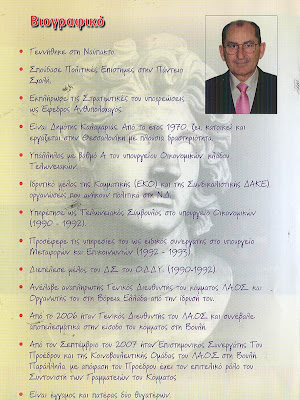 Βιογραφικό
• Γεννήθηκε στη Ναύπακτο.
• Σπούδασε Πολιτικές Επιστήμες στην Πάντειο
Σχολή.
• Εκπλήρωσε τις Στρατιωτικές του υποχρεώσεις
ως Έφεδρος Ανθυπολοχαγός.
• Είναι Δημότης Καλαμαριάς. Από το έτος 1970, ζει, κατοικεί και
εργάζεται στην Θεσσαλονίκη με πλούσια δραστηριότητα.
• Υπάλληλος με βαθμό Α' του υπουργείου Οικονομικών κλάδου
Τελωνειακών.
• Ιδρυτικό μέλος της Κομματικής (ΕΚΟ) και της Συνδικαλιστικής ΔΑΚΕ)
οργανώσεις που ανήκουν πολιτικά στη Ν.Δ.
• Υπηρέτησε ως Τελωνειακός Σύμβουλος στο υπουργείο Οικονομικών
(1990 - 1992).
• Προσέφερε τις υπηρεσίες του ως ειδικός συνεργάτης στο υπουργείο
Μεταφορών και Επικοινωνιών (1992 - 1993).
• Διετέλεσε μέλος του Δ.Σ. του Ο.Δ.Δ.Υ. (1990-1992).
• Ανέλαβε αναπληρωτής Γενικός Διευθυντής του κόμματος ΛΑ.Ο.Σ. και
Οργανωτής του στη Βόρεια Ελλάδα από την ίδρυσή του.
• Από το 2006 ήταν Γενικός Διευθυντής του ΛΑ.Ο.Σ. και συνέβαλε
αποτελεσματικά στην είσοδο του κόμματος στη Βουλή.
• Από τον Σεπτέμβριο του 2007 ήταν Επιστημονικός Συνεργάτης Του
Προέδρου και της Κοινοβουλευτικής Ομάδος του ΛΑ.Ο.Σ στη Βουλή.
Παράλληλα με απόφαση του Προέδρου έχει τον επιτελικό ρόλο του
Συντονιστή των Γραμματειών του Κόμματος.
• Είναι έγγαμος και πατέρας δύο θυγατέρων.